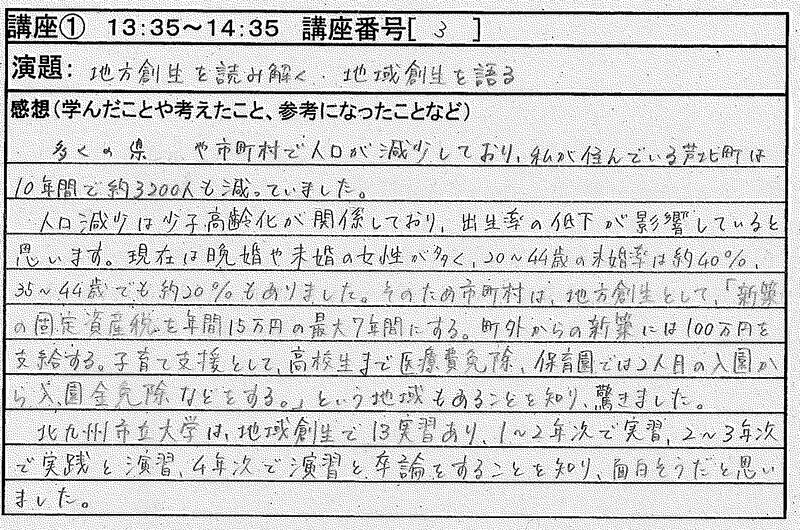 講座① 13:35～14:35 講座番号[ 3 ]
演題: 地方創生を読み解く・地域創生を語る
感想(学んだことや考えたこと、参考になったことなど)
多くの県 や市町村で人口が減少しており、私が住んでいる芦北町は
10年間で約3200人も減っていました。
人口減少は少子高齢化が関係しており、出生率の低下が影響していると
思います。現在は晩婚や未婚の女性が多く、20～44歳の未婚率は約40%、
35～44歳でも約20%もありました。そのため市町村は、地方創生として、「新築
の固定資産税を年間15万円の最大7年間にする。町外からの新築には100万円を
支給する。子育て支援として、高校生まで医療費免除、保育園では2人目の入園か
ら入園金免除などをする。」という地域もあることを知り、驚きました。
北九州市立大学は、地域創生で13実習あり、1～2年次で実習、2～3年次
で実践と演習、4年次で演習と卒論をすることを知り、面白そうだと思い
ました。